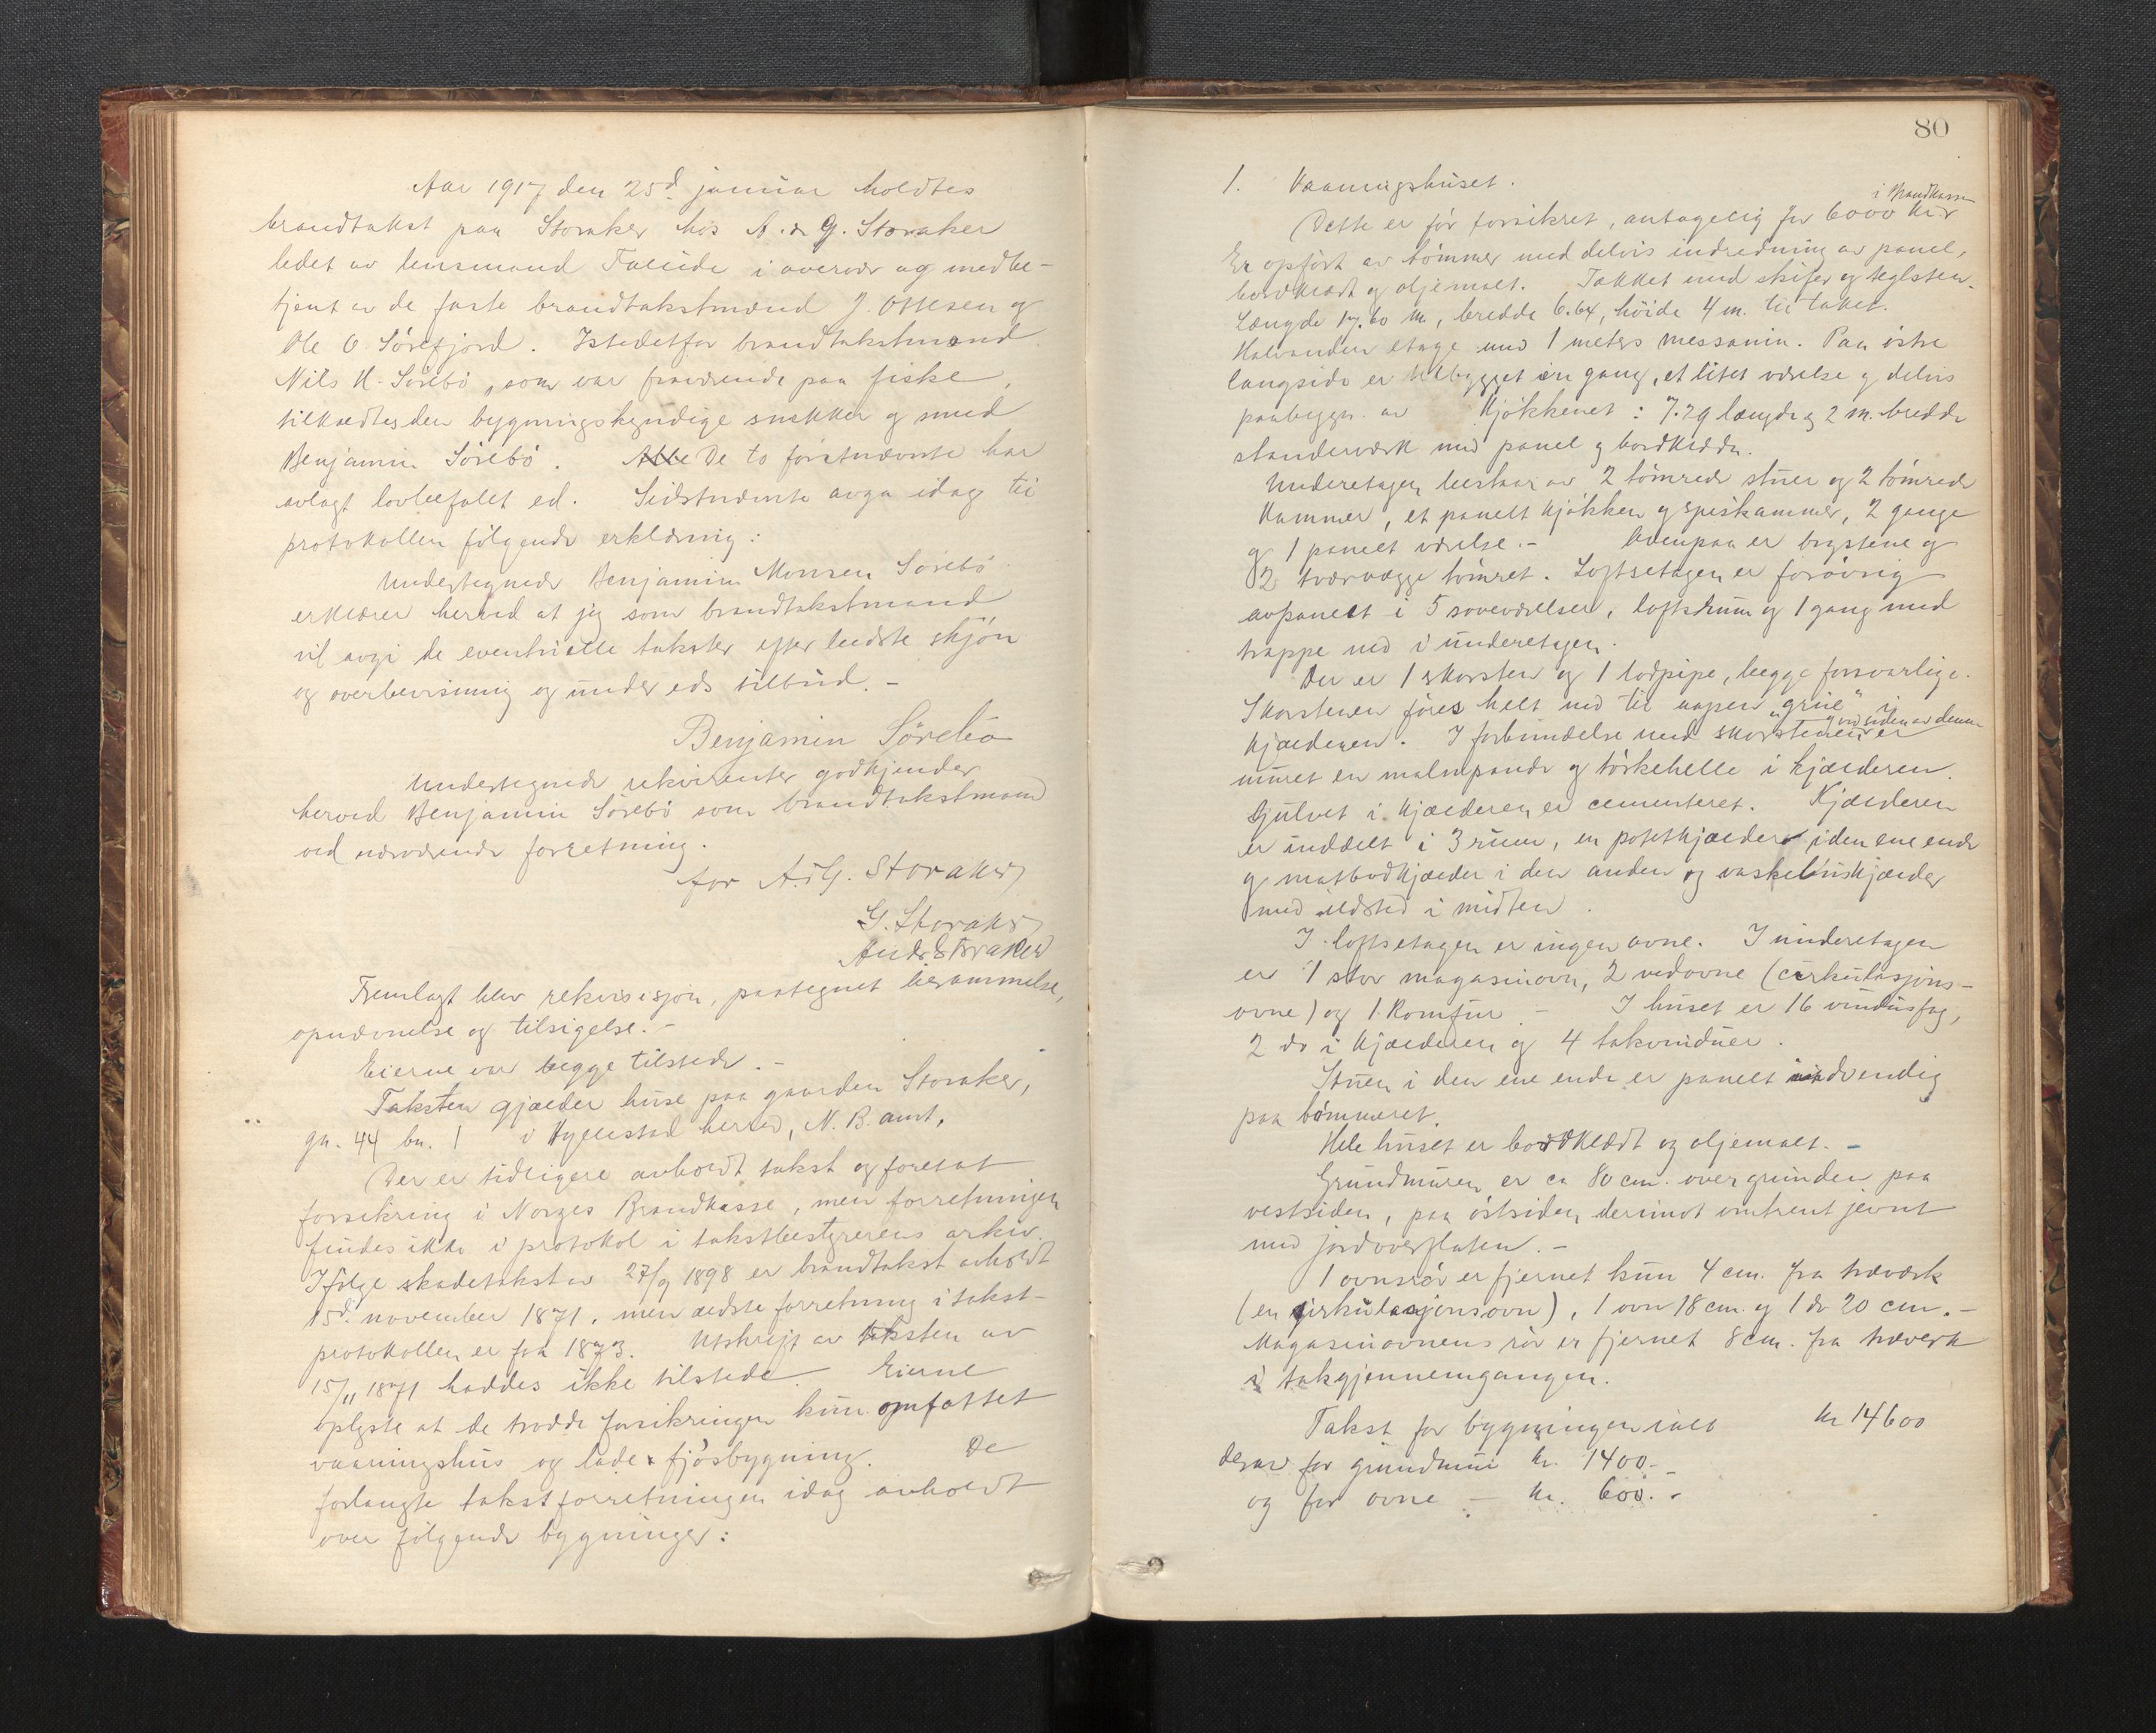 Aar 1917 den 25d. januar holdtes
brandtakst paa Storaker hos A. & G. Storaker
ledet av lensmand i overvær og medbe-
tjent av de faste brandtakstmænd J. Ottesen og
Ole O Sörefjord. Istedetfor brandtakstmand
Nils H. Sörebö, som var fraværende paa fiske,
tilkaldtes den bygningskyndige snekker og smed
Benjamin Sörebö. Alle De to förstnævnte har
avlagt lovbefalet ed. Sidstnævnte avga idag til
protokollen fölgende erklæring:
Undertegnede Benjamin Monsen Sörebö
erklærer herved at jeg som brandtakstmand
vil avgi de eventuelle takster efter bedste skjön
og overbevisning og under eds tilbud. -
Benjamin Sörebö
Undertegnede rekvirenter godkjender
herved Benjamin Sörebö som brandtakstmand
ved nærværende forretning.
for A. & G. Storaker
G. Storaker
Andr Storaker
Fremlagt blev rekvisisjon, paategnet berammelse,
opnævnelse og tilsigelse. -
Eierne var begge tilstede. -
Taksten gjælder huse paa gaarden Storaker,
gn. 44 bn. 1 i Hyllestad herred, N. B. amt.
Der er tidligere avholdt takst og foretat
forsikring i Norges Brandkasse, men forretningen
findes ikke i protokol i takstbestyrerens arkiv.
Ifölge skadetakst av 27/9 1898 er brandtakst avholdt
15d. november 1871, men ældste forretning i takst-
protokollen er fra 1873. Utskrift av taksten av
15/11 1871 haddes ikke tilstede. Eierne
oplyste at de trodde forsikringen kun omfattet
vaaningshus og lade & fjösbygning. De
forlangte takstforretningen idag avholdt
over fölgende bygninger:
80
1. Vaaningshuset.
i Brandkassen
Dette er för forsikret, antagelig for 6000 kr
Er opfört av tömmer med delvis indredning av panel,
bordklædt og oljemalt. Takket med skifer og teglsten.
Længde 17.60 m, bredde 6.64, höide 4 m. til taket.
Halvanden etage med 1 meters messanin. Paa östre
langside er utbygget en gang, et litet værelse og delvis
paabygn. av Kjökkenet: 7.29 længde og 2 m. bredde
standerværk med panel og bordklædde.
Underetagen bestaar av 2 tömrede stuer og 2 tömrede
Kammer, et panelt kjökken og spiskammer, 2 gange
og 1 panelt værelse. - Ovenpaa er brystene og
2 tværvægge tömret. Loftsetagen er forövrig
avpanelt i 5 soveværelser, loftsrum og 1 gang med
trappe ned i underetagen.
Der er 1 skorsten og 1 lodpipe, begge forsvarlige.
Skorstenen föres helt ned til aapen "grue" i
og ved siden av denne
kjælderen. I forbindelse med skorstenen er
muret en malmpande og törkehelle i kjælderen.
Gulvet i kjælderen er cementeret. Kjælderen
er inddelt i 3 rum, en potetkjælder i den ene ende
og matbodkjælder i den anden og vaskehuskjælder
med ildsted i midten.
I loftsetagen er ingen ovne. I underetagen
er 1 stor magasinovn, 2 vedovne (cirkulasjons-
ovne) og 1 Komfur. - I huset er 16 vindusfag,
2 do i kjælderen og 4 takvinduer.
Stuen i den ene ende er panelt indvendig
paa tömmeret.
Hele huset er bordklædt og oljemalt. -
Grundmuren er ca 80 cm. over grunden paa
vestsiden, paa östsiden derimot omtrent jevnt
med jordoverflaten. -
1 ovnsrör er fjernet kun 4 cm. fra træværk
(en cirkulasjonsovn), 1 ovn 18 cm. og 1 do 20 cm. -
Magasinovnens rör er fjernet 8 cm. fra træverk
i takgjennemgangen.
Takst for bygningen ialt kr 14600
derav for grundmur kr. 1400. -
og for ovne - kr. 600. -